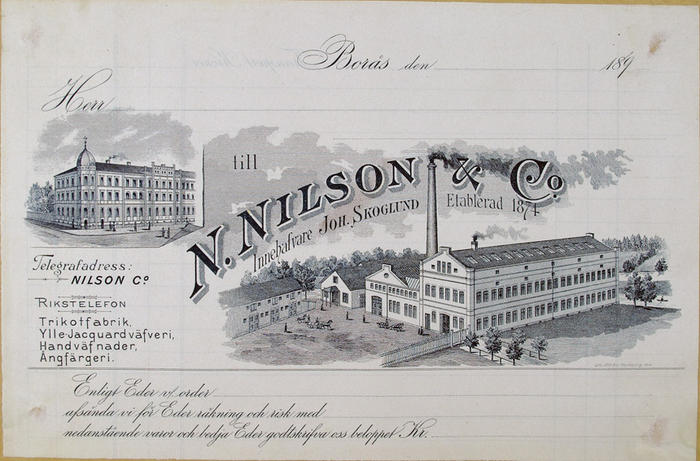 Borås den 189
Herr
till
N. NILSON & Co.
Innehafvare JOH. SKOGLUND
Etablerad 1874.
Telegrafadress:
NILSON Co.
RIKSTELEFON
Trikotfabrik,
Ylle-Jacquardväfveri,
Handväfnader,
Ångfärgeri.
Enligt Eder v/ order
afsända vi för Eder räkning och risk med
nedanstående varor och bedja Eder godtskrifva oss beloppet Kr.